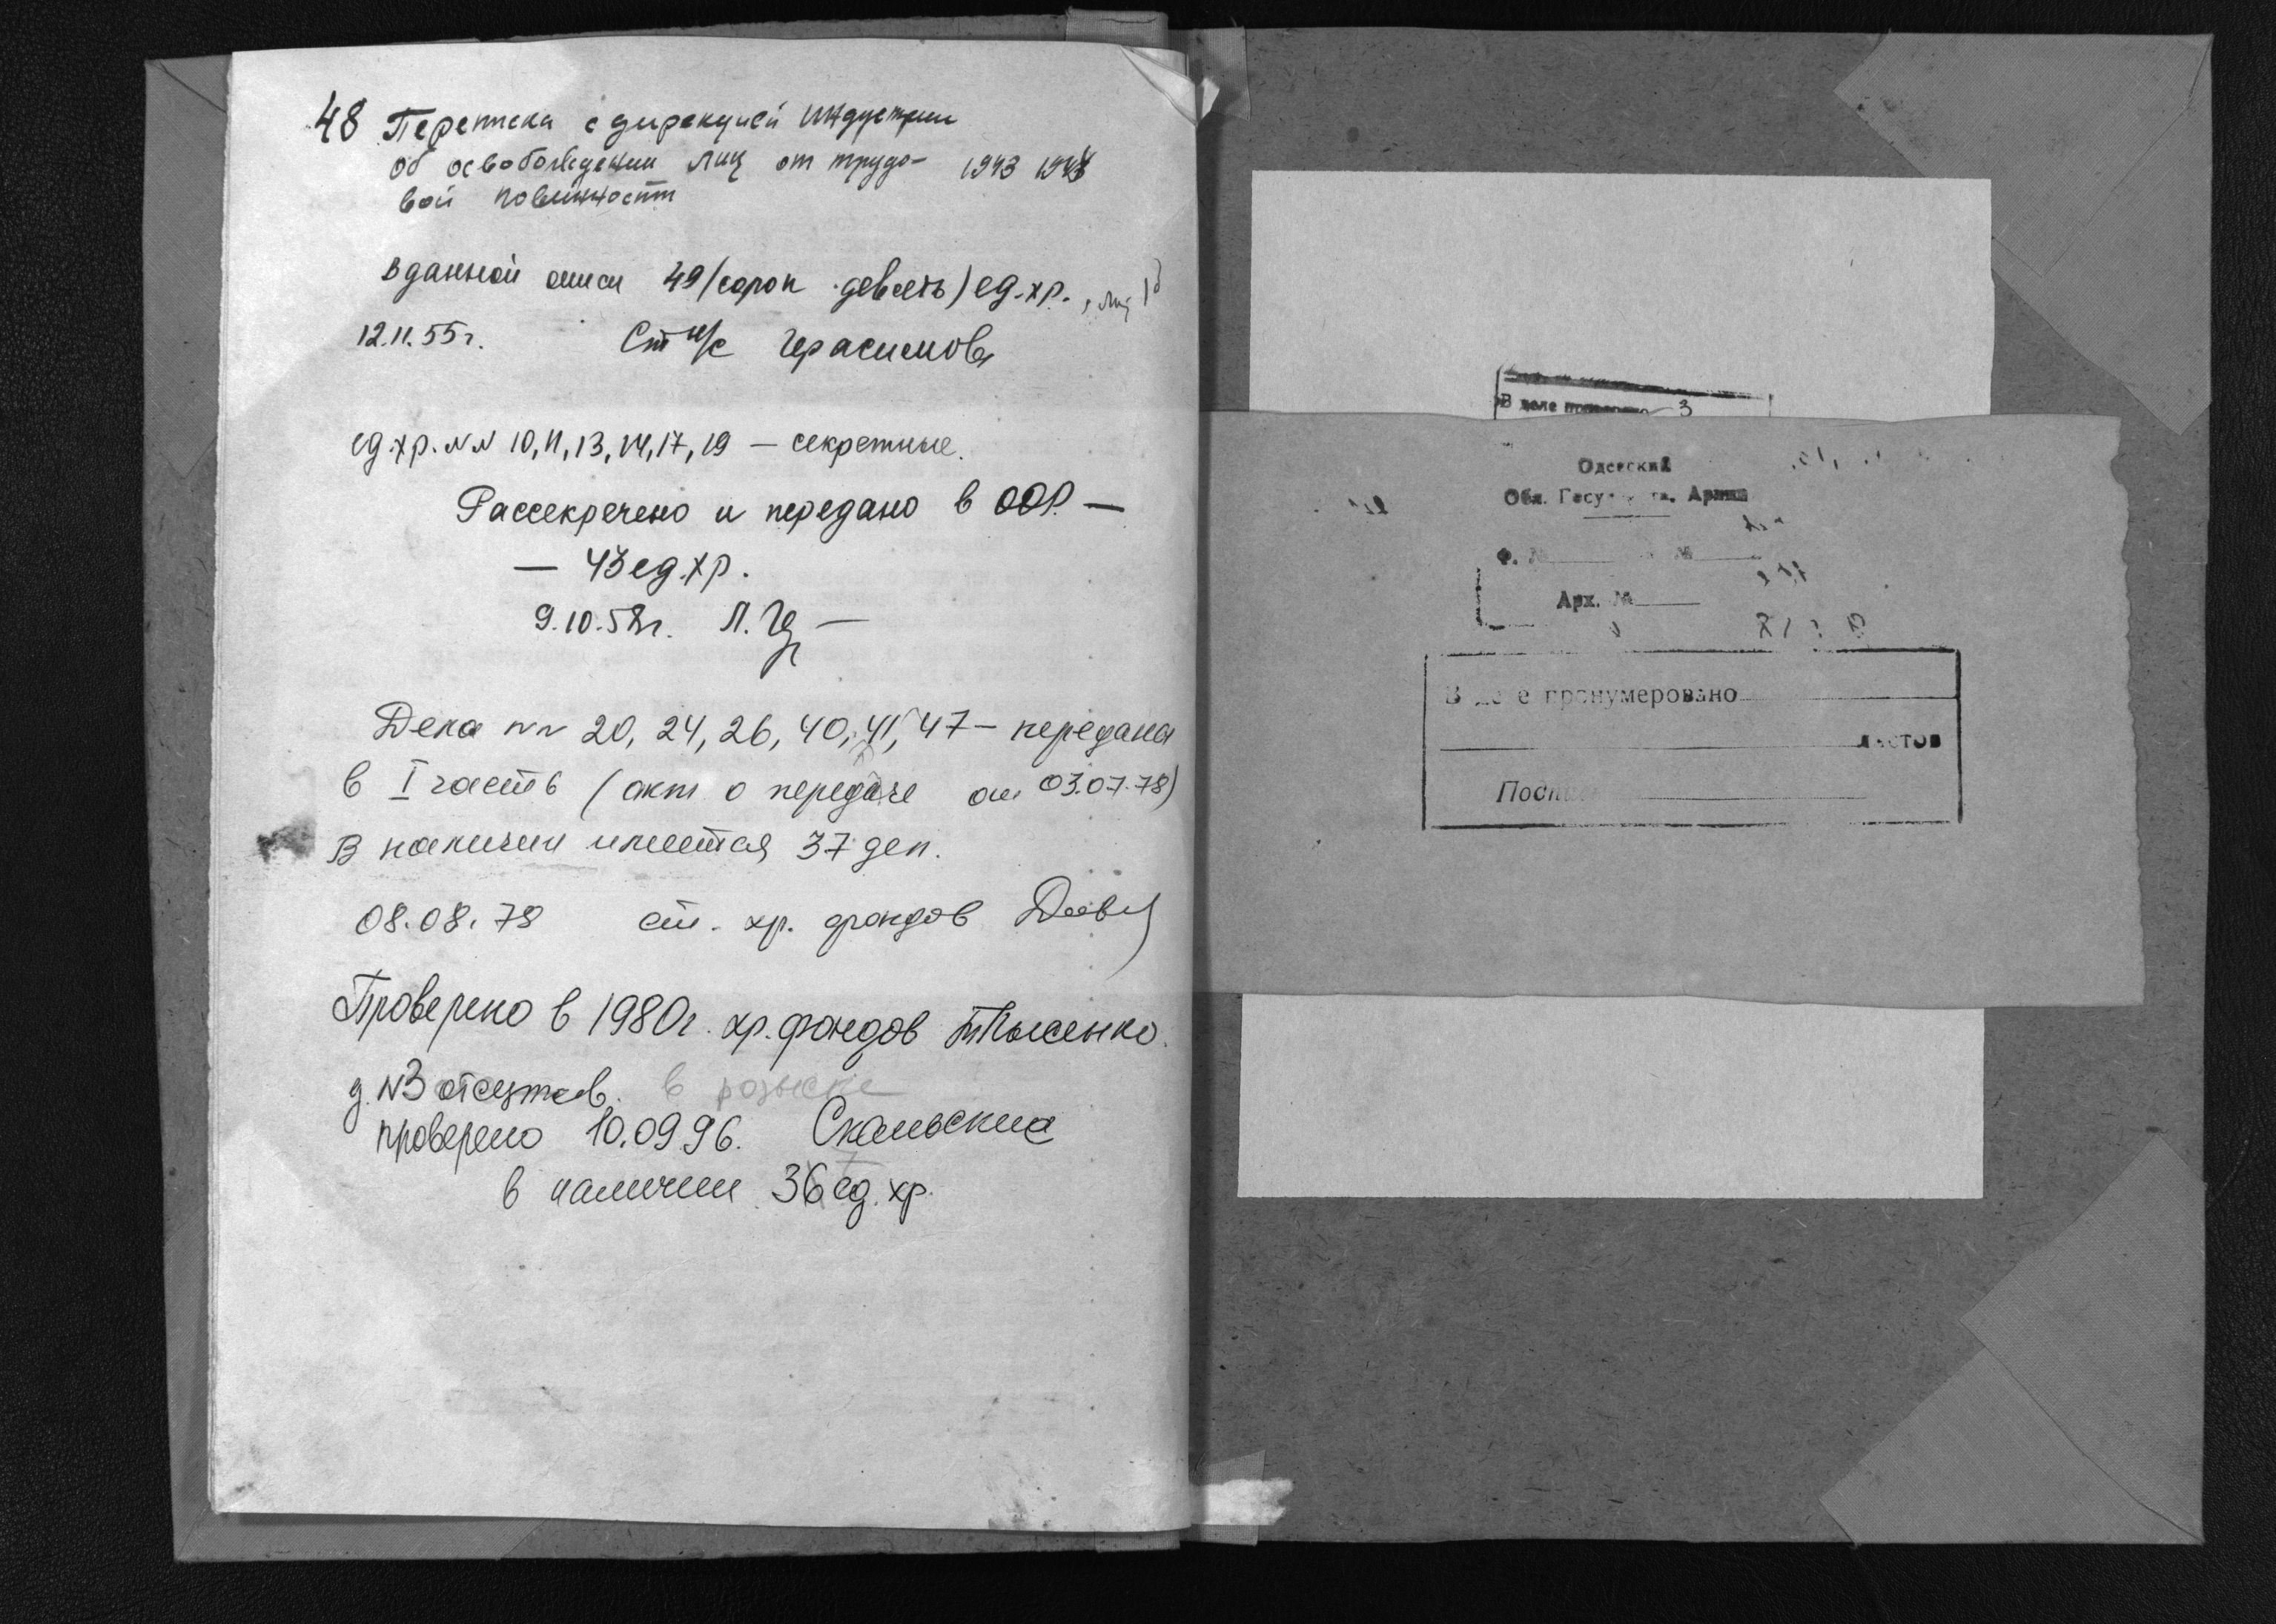 48 Переписка с дирекцией индустрии
об освобождении лиц от трудо- 1943 1943
вой повинности
В данной описи 49 (сорок девять) ед. хр.
12.11.55г. Ст н/с Герасимова
ед. хр. NN 10, 11, 13, 14, 17, 19 — секретные.
Рассекречено и передано в ООФ. —
— 43 ед. хр.
9.10.58г. Л.
Дела NN 20, 24, 26, 40, 41, 47 — переданы
в I часть (акт о передаче от 03.07.78)
В наличии имеется 37 дел.
08.08.78 ст. хр. фондов
Проверено в 1980г. хр. фондов
д. N3 отсутств. в розыске
проверено 10.09.96.
в наличии 36 ед. хр.
В деле 3
Одесский
Обл. Архив
Ф. № №
Арх. №
В деле пронумеровано
листов